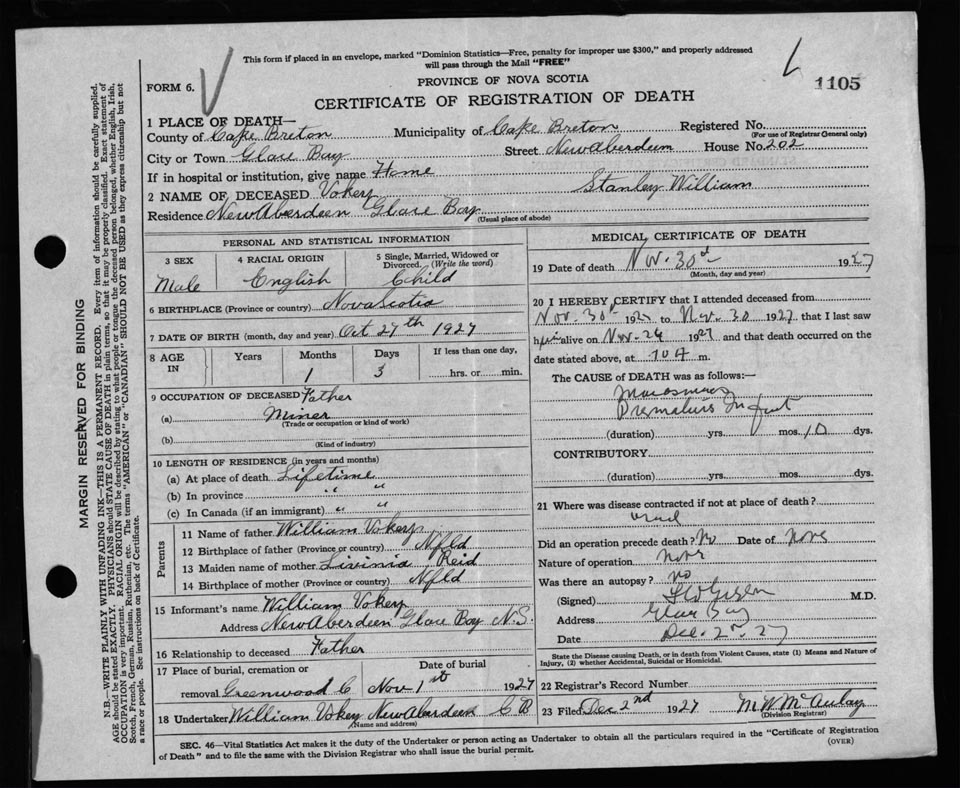 This form if placed in an envelope, marked "Dominion Statistics—Free, penalty for improper use $300," and properly addressed
will pass through the Mail "FREE"
1105
FORM 6.
PROVINCE OF NOVA SCOTIA
CERTIFICATE OF REGISTRATION OF DEATH
1 PLACE OF DEATH—
County of Cape Breton Municipality of Cape Breton Registered No.
(For use of Registrar General only)
City or Town Glace Bay Street New Aberdeen House No. 202
If in hospital or institution, give name Home
2 NAME OF DECEASED Vokey Stanley William
Residence New Aberdeen Glace Bay
(Usual place of abode)
PERSONAL AND STATISTICAL INFORMATION
3 SEX 4 RACIAL ORIGIN 5 Single, Married, Widowed or Divorced. (Write the word)
Male English Child
6 BIRTHPLACE (Province or country) Nova Scotia
7 DATE OF BIRTH (month, day and year) Oct 27th 1927
8 AGE IN Years Months Days If less than one day,
1 3 hrs. or min.
9 OCCUPATION OF DECEASED Father
(a) Miner
(Trade or occupation or kind of work)
(b)
(Kind of industry)
10 LENGTH OF RESIDENCE (in years and months)
(a) At place of death Lifetime
(b) In province " "
(c) In Canada (if an immigrant) " "
Parents
11 Name of father William Vokey
12 Birthplace of father (Province or country) Nfld
13 Maiden name of mother Livinia Reid
14 Birthplace of mother (Province or country) Nfld
15 Informant's name William Vokey
Address New Aberdeen Glace Bay N.S.
16 Relationship to deceased Father
17 Place of burial, cremation or removal Greenwood C
Date of burial
Nov 1st 1927
18 Undertaker William Vokey New Aberdeen C B
(Name and address)
MEDICAL CERTIFICATE OF DEATH
19 Date of death Nov. 30th 1927
(Month, day and year)
20 I HEREBY CERTIFY that I attended deceased from
Nov. 30 1927 to Nov. 30 1927 that I last saw
h alive on Nov. 29 1927 and that death occurred on the
date stated above, at 10 A m.
The CAUSE of DEATH was as follows:—
Marasmus
Premature Infant
(duration) yrs. mos. 10 dys.
CONTRIBUTORY
(duration) yrs. mos. dys.
21 Where was disease contracted if not at place of death?
Did an operation precede death? No Date of None
Nature of operation None
Was there an autopsy? no
(Signed) M.D.
Address Glace Bay
Date Dec. 2nd 27
State the Disease causing Death, or in death from Violent Causes, state (1) Means and Nature of
Injury, (2) whether Accidental, Suicidal or Homicidal.
22 Registrar's Record Number
23 Filed Dec 2nd 1927 M. W. McAulay
(Division Registrar)
SEC. 46—Vital Statistics Act makes it the duty of the Undertaker or person acting as Undertaker to obtain all the particulars required in the "Certificate of Registration
of Death" and to file the same with the Division Registrar who shall issue the burial permit.
(OVER)
MARGIN RESERVED FOR BINDING
N.B.—WRITE PLAINLY WITH UNFADING INK—THIS IS A PERMANENT RECORD. Every item of information should be carefully supplied.
AGE should be stated EXACTLY. PHYSICIANS should STATE CAUSE OF DEATH in plain terms, so that it may be properly classified. Exact statement of
OCCUPATION is very important. RACIAL ORIGIN will be described by stating to what people or tongue the deceased person belonged, whether English, Irish,
Scotch, French, German, Russian, Ruthenian, etc. The terms "AMERICAN" or "CANADIAN" SHOULD NOT BE USED as they express citizenship but not
a race or people. See instructions on back of Certificate.